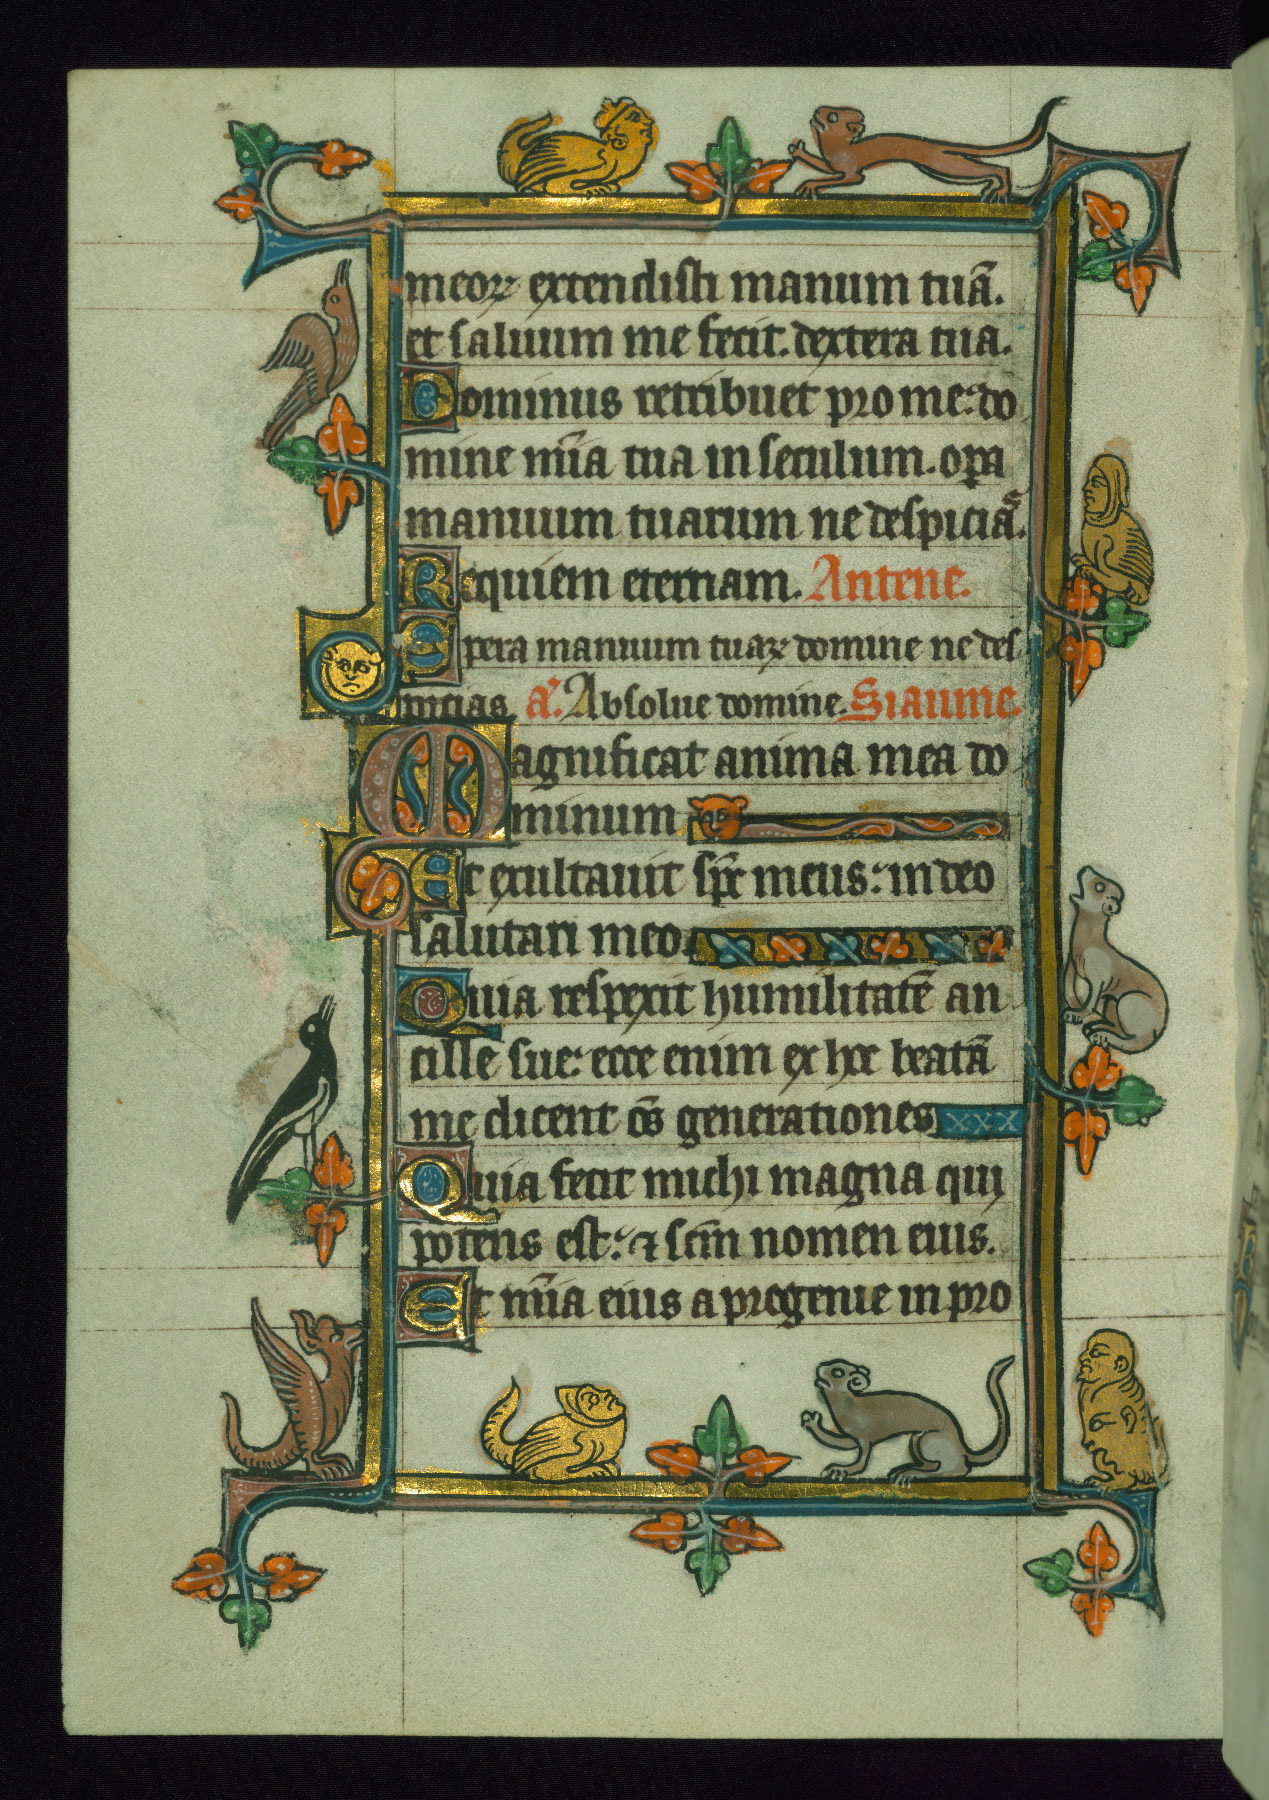 meoꝝ extendisti manum tuā.
et saluum me fecit. dextera tua.
Dominus retribuet pro me: do
mine mīa tua in seculum. oꝑa
manuum tuarum ne despicias.
Requiem eternam. Antene.
Opera manuum tuaꝝ domine ne des
picias. a. Absolue domine. Siaume
Magnificat anima mea do
minum
Et exultauit sp̄c meus: in deo
salutari meo.
Quia respexit humilitatē an
cille sue: ecce enim ex hoc beatā
me dicent oēs generationes
Quia fecit michi magna qui
potens est: ⁊ scm̄ nomen eius.
Et mīa eius a progenie in pro